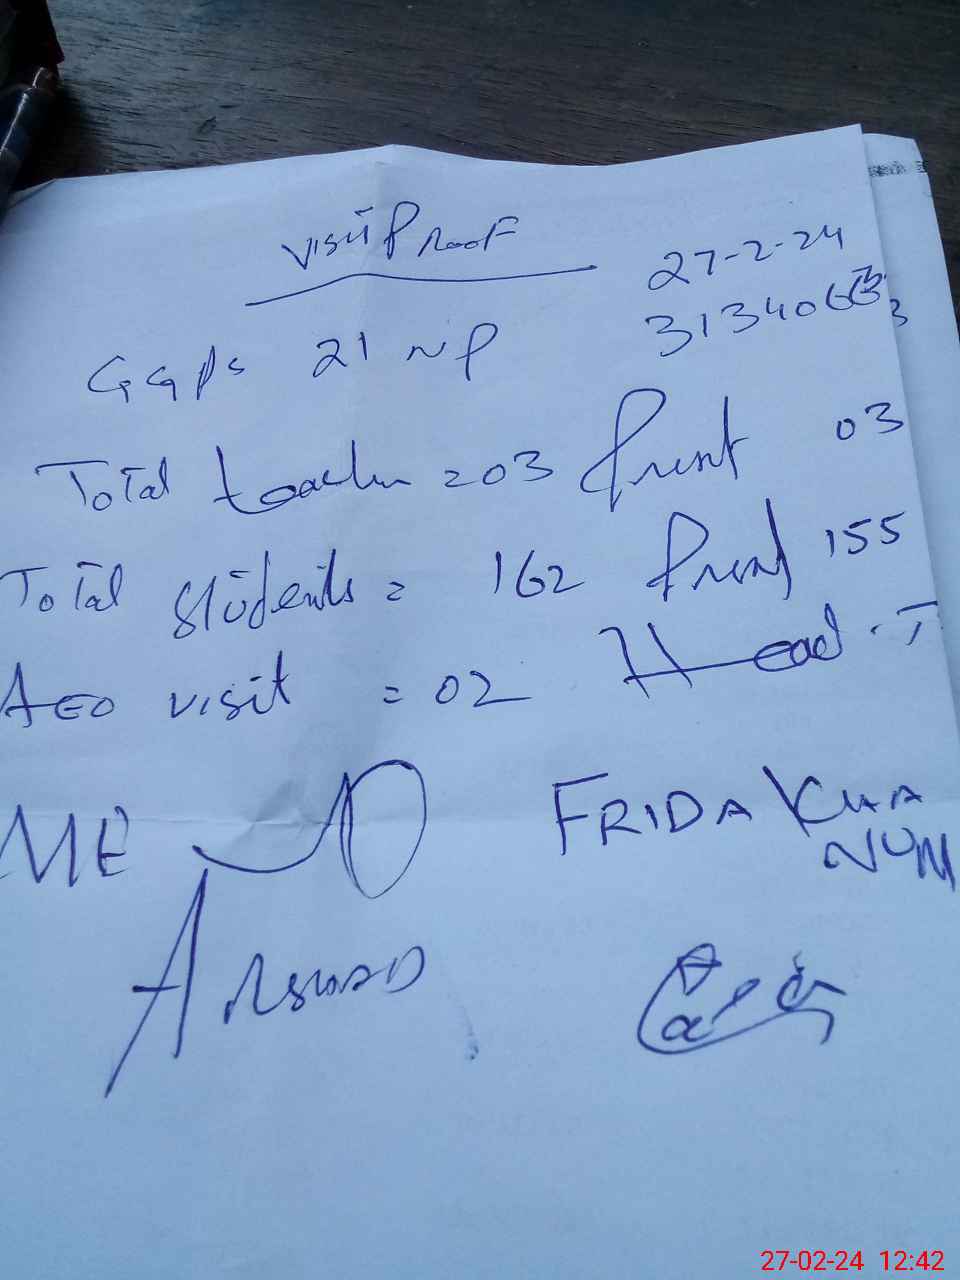 Visit Proof
27-2-24
GGPS 21 NP
Total teacher = 03 Present 03
Total students = 162 Present 155
AEO visit = 02 Head .T
MEO FRIDA KHA
NUM
ARSHAD
27-02-24 12:42